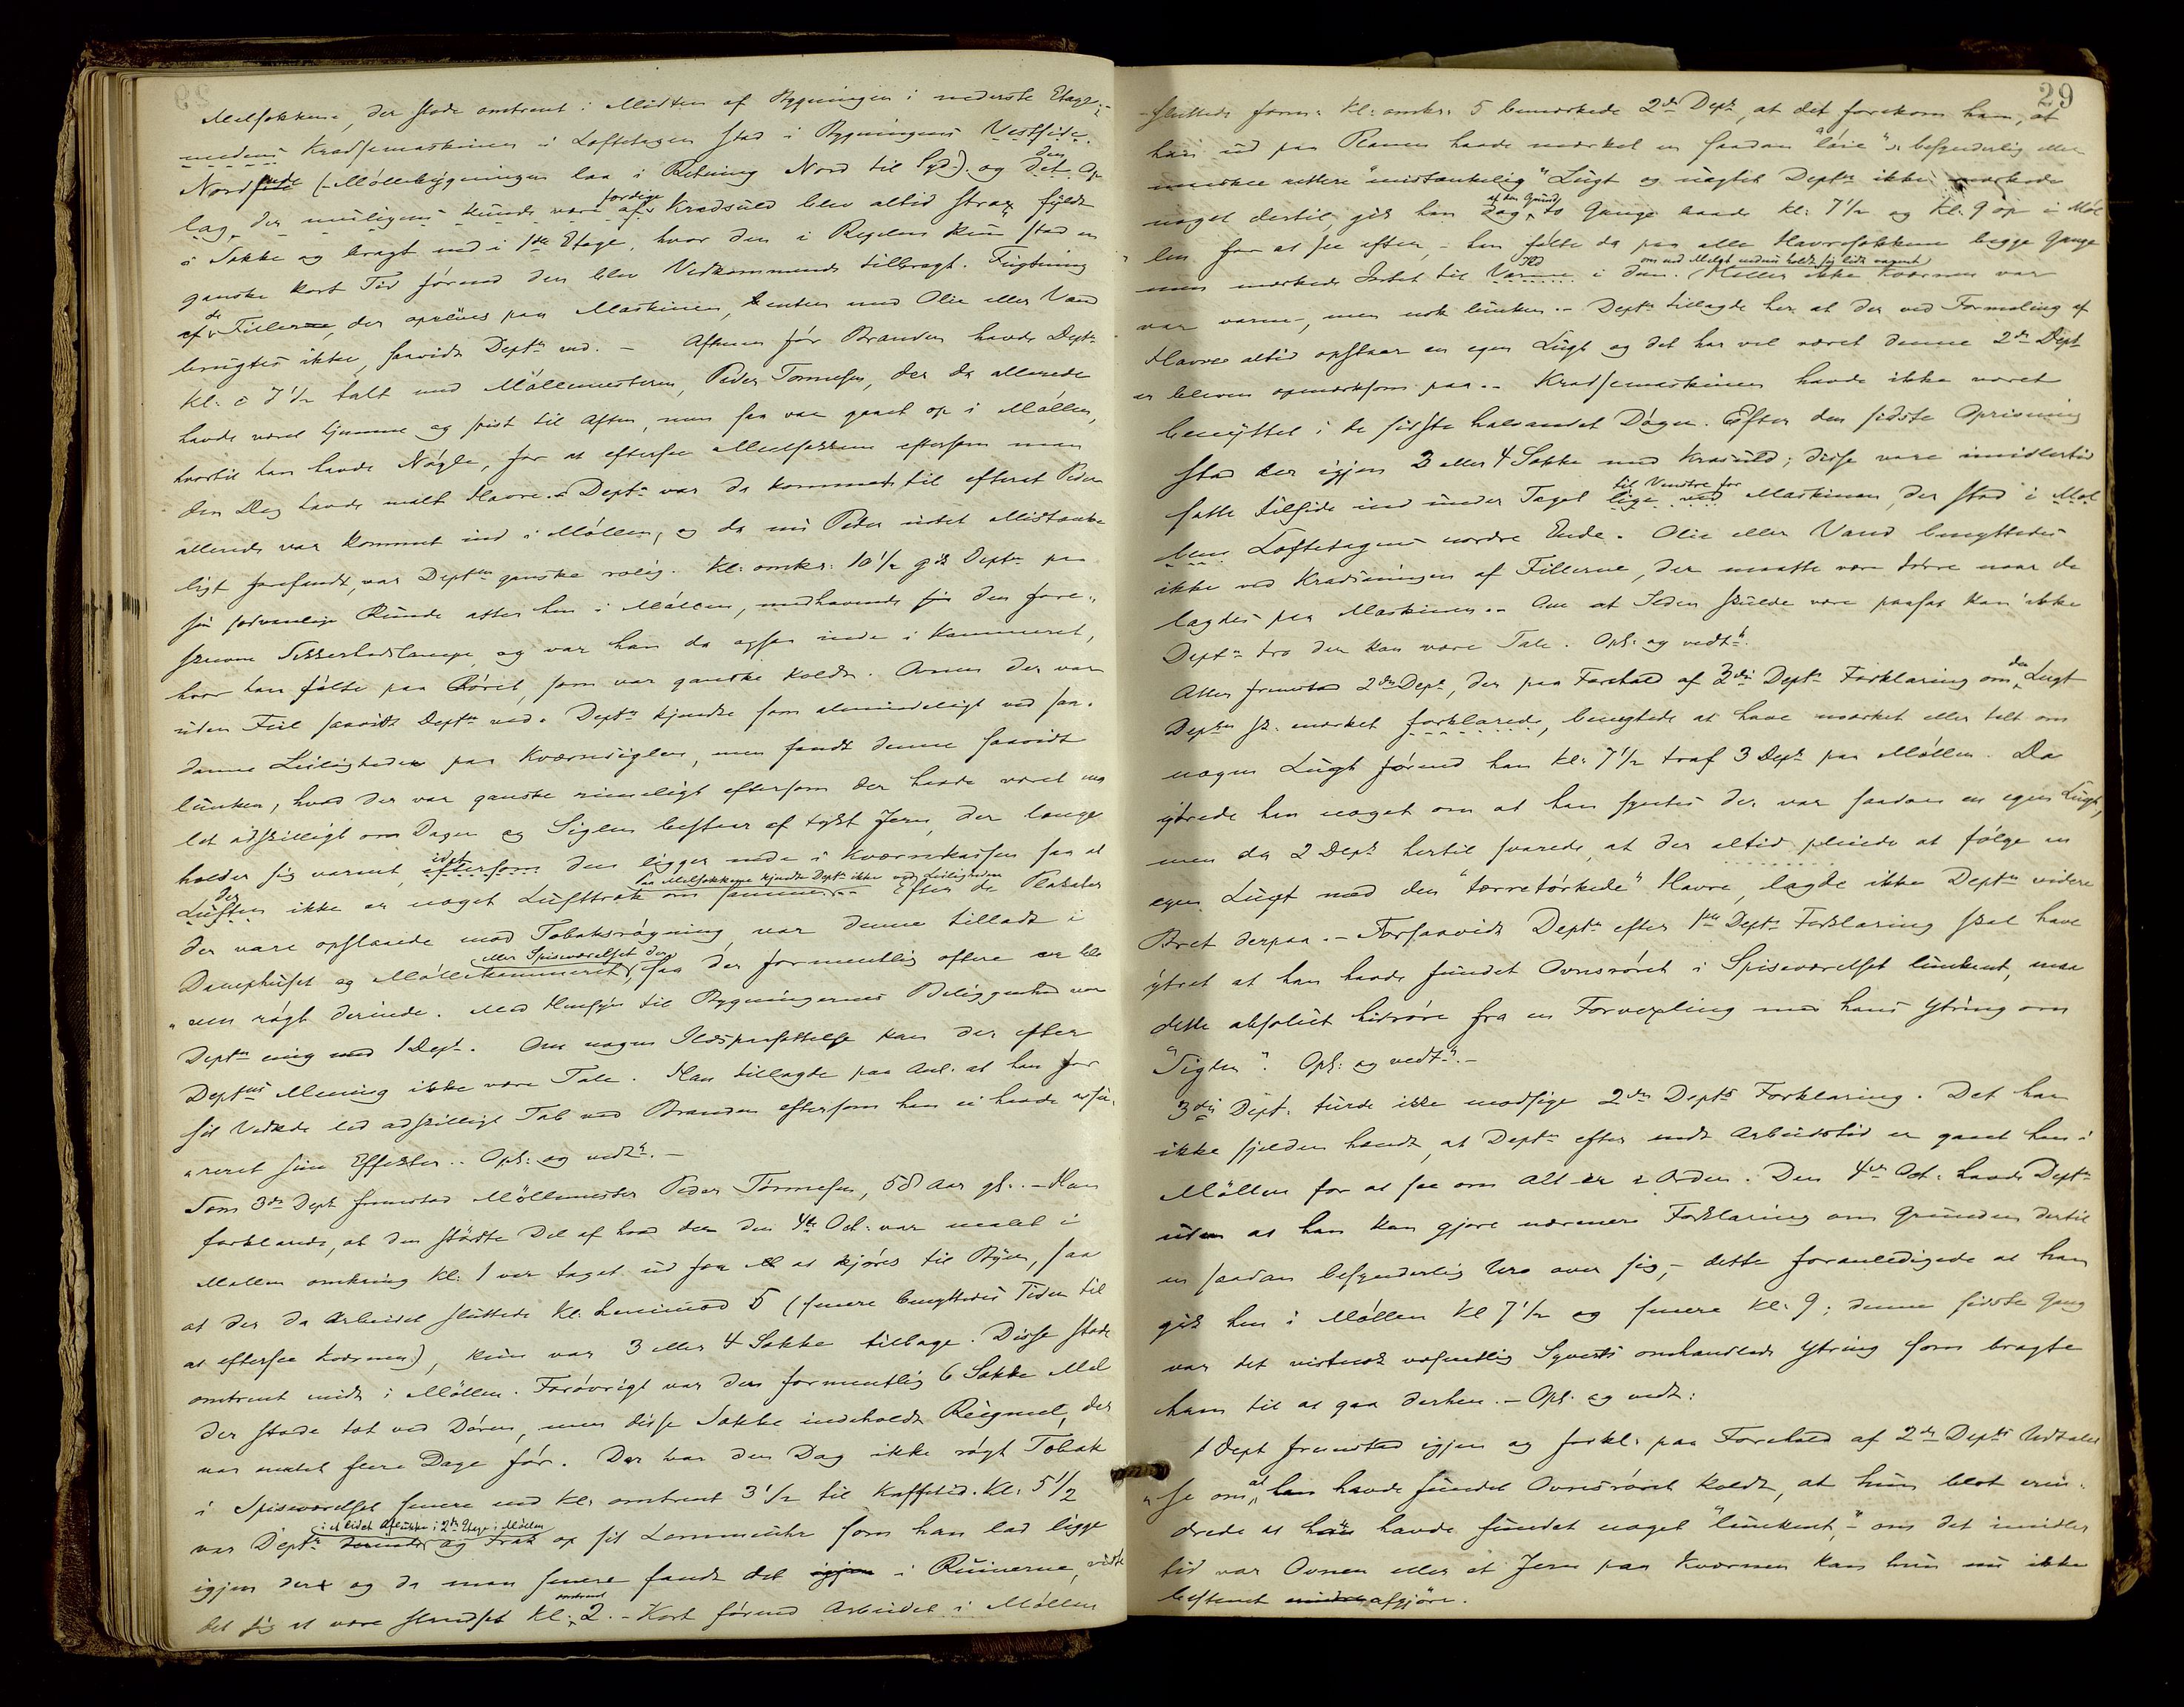 Melsækkene, der stode omtrent i Midten af Bygningen i nederste Etage;-
medens Kradsemaskinen i Loftetagen stod i Bygningens Vestside.
Nordende (Møllebygningen laa i Retning Nord til Syd). og det den Op
lag der muligens kunde være af fordige Kradsuld blev altid strax fyldt
i Sække og bragt ned i 1ste Etage, hvor den i Regelen kun stod en
ganske kort Tid førend den blev Vedkommende tilbragt. Fugtning
af de Fillerne, der oprives paa Maskinen, enten med Olie eller Vand
brugtes ikke, saavidt Deptn ved. - Aftenen før Branden havde Deptn
Kl: c 7 1/2 talt med Møllemesteren, Peder Tønnesen, der da allerede
havde været hjemme og spist til Aften, men saa var gaaet op i Møllen,
hvortil han havde Nøgle, for at eftersee Melsækkene eftersom man
den Dag havde malt Havre. - Deptn var da kommet til efterat Peder
allerede var kommet ind i Møllen, og da nu Peder intet Mistænke
ligt forefandt, var Deptn ganske rolig. Kl: omkr: 10 1/2 gik Deptn paa
sin sædvanlige Runde atter hen i Møllen, medhavende den fore-
skrevne Sikkerhedslampe, og var han da ogsaa inde i Kammeret,
hvor han følte paa Røret, som var ganske koldt. Ovnen der var
uden Feil saavidt Deptn ved. Deptn kjendte som almindeligt ved saa-
danne Leiligheder paa Kværnsiglen, men fandt denne saavidt
lunken, hvad der var ganske rimeligt eftersom der havde været ma
let adskilligt om Dagen og Siglen bestaar af tykt Jern, der længe
holder sig varmt, eftersom idet den ligger nede i Kværnkassen saa at
Luften der ikke er noget Lufttræk om samme. Paa Melsækkene kjendte Deptn ikke ved Leiligheden - Efter de Plakater
der vare opslaaede mod Tobaksrøgning, var denne tilladt i
Damphuset og Møllekammeret eller Spiseværelset der, saa der formentlig oftere er ble
"ven røgt derinde. Med Hensyn til Bygningernes Beliggenhed var
Deptn enig med 1 Dept. Om nogen Ildspaasættelse kan der efter
Deptns Mening ikke være Tale. Han tillagde paa Anl: at han for
sit Vedkde led adskilligt Tab ved Branden eftersom han ei havde assu-
"reret sine Effekter.. Opl: og vedt. -
Som 3die Dept fremstod Møllemester Peder Tønnesen, 58 Aar gl:. - Han
forklarede, at den største Del af hvad der den 4de Oct: var malet i
Møllen omkring Kl: 1 var taget ud for at kjøres til Byen, saa
at der da Arbeidet sluttede Kl. henimod 5 (senere benyttedes Tiden til
at eftersee Kværnen), kun var 3 eller 4 Sække tilbage. Disse stode
omtrent midt i Møllen. Forøvrigt var der formentlig 6 Sække Mel
der stode tæt ved Døren, men disse Sække indeholdt Rugmel, der
var malet flere Dage før. Der var den Dag ikke røgt Tobak
i Spiseværelset senere end Kl: omtrent 3 1/2 til Kaffetid. Kl: 5 1/2
var Deptn i et lidet Aflukke i 2den Etage i Møllen og trak op sit Lommeuhr som han lod ligge
igjen der og da man senere fandt det igjen i Ruinerne, viste
det sig at være standset Kl: omtrent 2. - Kort førend Arbeidet i Møllen
29
sluttede Kl: omkr: 5 bemærkede 2den Dept, at det forekom ham, at
han ud paa Ramen havde mærket en saadan "løie" besynderlig eller
maaskee rettere "mistænkelig" Lugt og uagtet Deptn ikke mærkede
noget dertil, gik han dog af den Grund to Gange baade Kl: 7 1/2 og Kl: 9 op i Møl
"len for at see efter, - han følte da paa alle Havresækkene begge Gange
men mærkede Intet til Varme Ild i dem. (Heller ikke Kværnen var om end Melet endnu holdt sig lidt varmt
var varm, men nok lunken. - Deptn tillagde her at der ved Formaling af
Havre altid opstaar en egen Lugt og det har vel været denne 2den Dept
er bleven opmærksom paa. - Kradsemaskinen havde ikke været
benyttet i de sidste halvandet Døgn. Efter den sidste Oprivning
stod der igjen 3 eller 4 Sække med Kraduld; disse vare imidlertid
satte tilside ind under Taget lige ved til Venstre for Maskinen, der stod i Møl
lens Loftetagens nordre Ende. Olie eller Vand benyttedes
ikke ved Kradsningen af Fillerne, der maatte være tørre naar de
lagdes paa Maskinen. - Om at Ilden skulde være paasat kan ikke
Deptn tro der kan være Tale. Opl: og vedt.
Atter fremstod 2den Dept, der paa Forehold af 3die Depts Forklaring om den Lugt
Deptn sk. mærket forklarede, benegtede at have mærket eller talt om
nogen Lugt førend han Kl: 7 1/2 traf 3 Dept paa Møllen. Da
ytrede han noget om at han syntes der var saadan en egen Lugt,
men da 2 Dept hertil svarede, at der altid pleiede at følge en
egen Lugt med den "tørretørkede" Havre, lagde ikke Deptn videre
Bret derpaa. - Forsaavidt Deptn efter 1ste Depts Forklaring skal have
ytret at han havde fundet Ovnsrøret i Spiseværelset lunkent, maa
dette absolut hidrøre fra en Forvexling med hans Ytring om
"Siglen". Opl: og vedt. -
3die Dept: turde ikke modsige 2den Depts Forklaring. Det har
ikke sjelden hændt, at Deptn efter endt Arbeidstid er gaaet hen i
Møllen for at see om Alt er i Orden. Den 4de Oct: havde Deptn
uden at han kan gjøre nærmere Forklaring om Grunden dertil
en saadan besynderlig Uro over sig, - dette foranledigede at han
gik hen i Møllen Kl 7 1/2 og senere Kl: 9; denne sidste Gang
var det vistnok væsentlig Syverts omhandlede Ytring som bragte
ham til at gaa derhen. - Opl. og vedt:
1 Dept fremstod igjen og forkl: paa Forehold af 2den Depts Udtalel
"se om, at han havde fundet Ovnsrøret koldt, at hun blot erin-
drede at han havde fundet noget "lunkent," - om det imidler
tid var Ovnen eller et Jern paa Kværnen kan hun nu ikke
bestemt afgjøre.